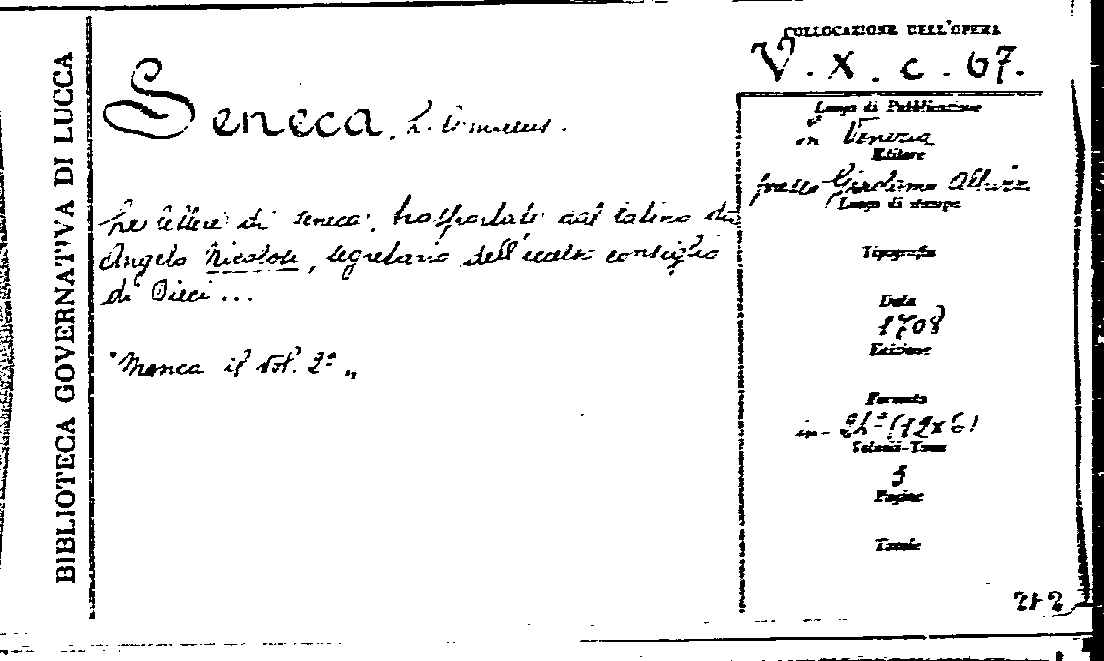 BIBLIOTECA GOVERNATIVA DI LUCCA
Seneca, L. Annaeus.
Le lettere di Seneca, trasportate dal latino da
Angelo Nicolosi, segretario dell'eccelso consiglio
di Dieci...
"Manca il vol. 2º„
COLLOCAZIONE DELL'OPERA
V. X. c. 67.
Luogo di Pubblicazione
in Venezia
Editore
presso Girolamo Albrizzi
Luogo di stampa
Tipografia
Data
1708
Edizione
Formato
in-24º (12x6)
Volumi-Tomi
3
Pagine
Tavole